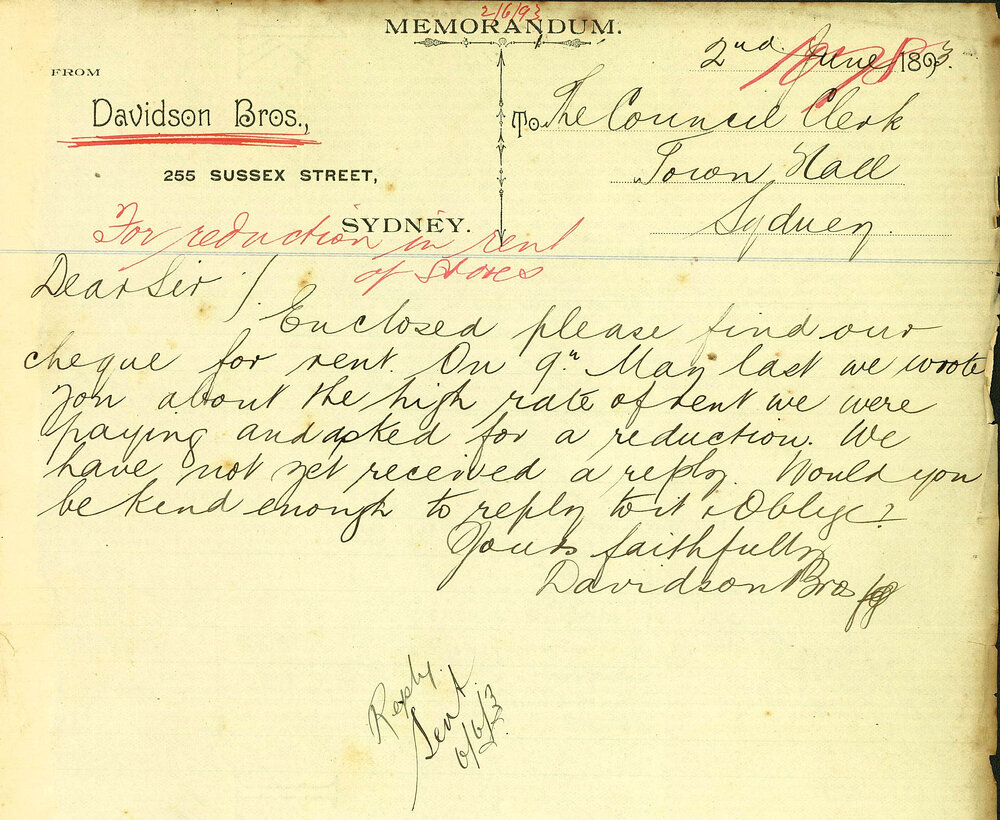 2/6/93
MEMORANDUM.
2nd June 1893.
FROM
Davidson Bros.,
255 SUSSEX STREET,
SYDNEY.
To The Council Clerk
Town Hall
Sydney.
For reduction in rent
of Stores
Dear Sir /.
Enclosed please find our
cheque for rent. On 9th May last we wrote
you about the high rate of rent we were
paying and asked for a reduction. We
have not yet received a reply. Would you
be kind enough to reply to it & Oblige?
Yours faithfully
Davidson Bros
Reply
Sent
6/6/3